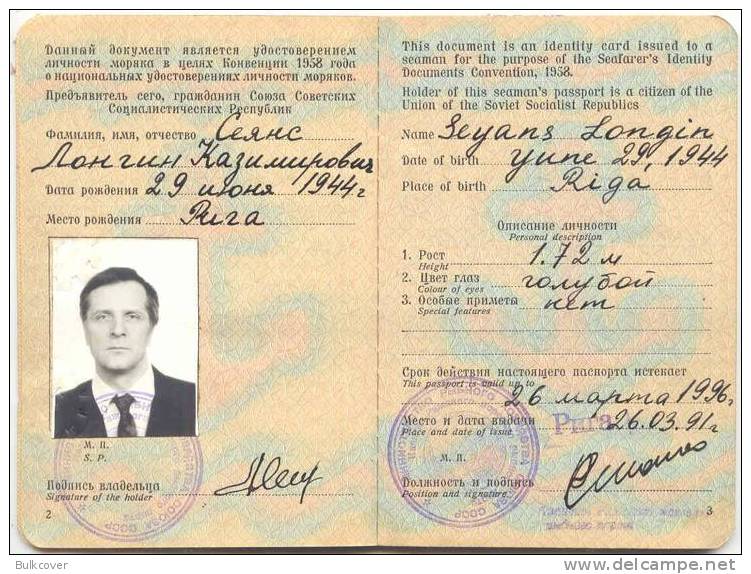 Данный документ является удостоверением
личности моряка в целях Конвенции 1958 года
о национальных удостоверениях личности моряков.
Предъявитель сего, гражданин Союза Советских
Социалистических Республик
Фамилия, имя, отчество Сеянс
Лонгин Казимирович
Дата рождения 29 июня 1944 г
Место рождения Рига
М. П.
S. P.
Подпись владельца
Signature of the holder
2
This document is an identity card issued to a
seaman for the purpose of the Seafarer's Identity
Documents Convention, 1958.
Holder of this seaman's passport is a citizen of the
Union of the Soviet Socialist Republics
Name Seyans Longin
Date of birth yune 29, 1944
Place of birth Riga
Описание личности
Personal description
1. Рост 1.72 м
Height
2. Цвет глаз голубой
Colour of eyes
3. Особые приметы нет
Special features
Срок действия настоящего паспорта истекает
This passport is valid up to
26 марта 1996г.
Место и дата выдачи Рига 26.03.91г
Place and date of issue
М. П.
Должность и подпись
Position and signature
3
Bulkcover
delcampe.net